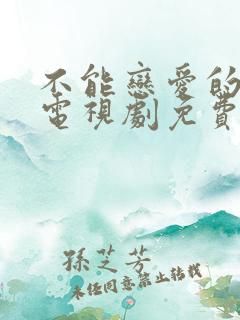 不能戀愛的
電視劇免費
孫芝芳
未经同意禁止转载